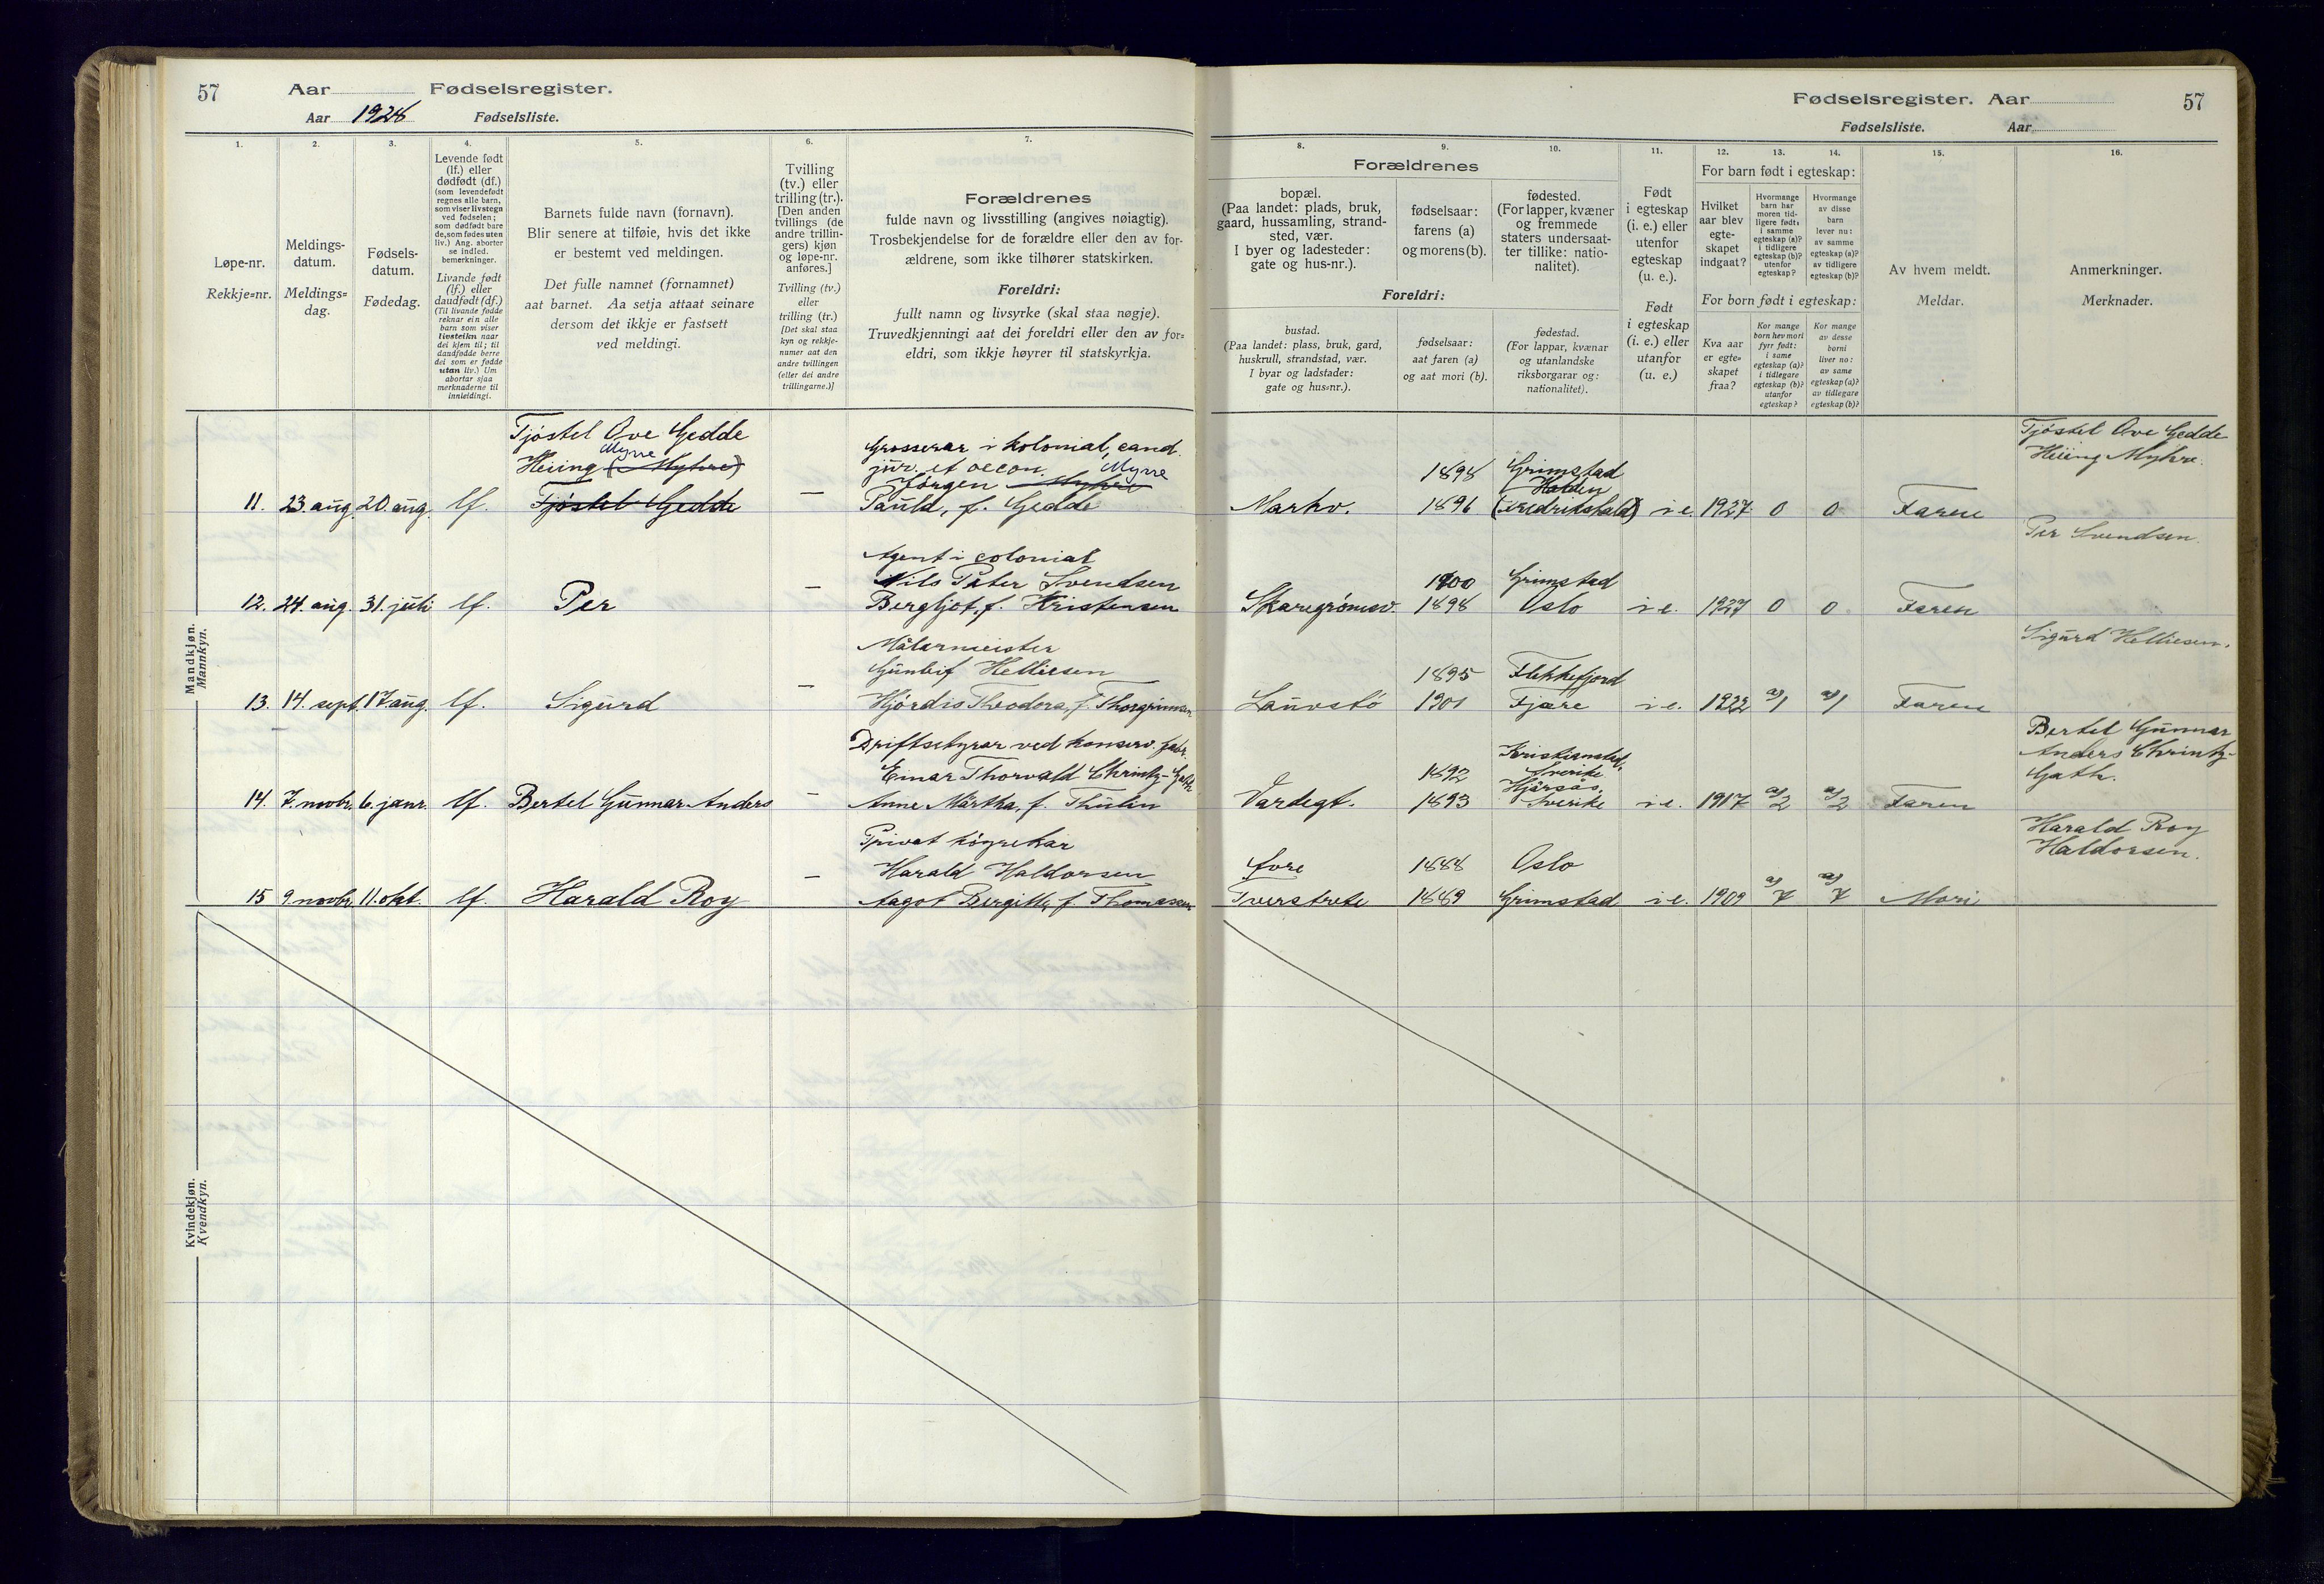 57 Aar Fødselsregister.
Aar 1928 Fødselsliste.
1. 2. 3. 4. 5. 6. 7.
Løpe-nr.
Rekkje=nr.
Meldings-
datum.
Meldings=
dag.
Fødsels-
datum.
Fødedag.
Levende født
(lf.) eller
dødfødt (df.)
(som levendefødt
regnes alle barn,
som viser livstegn
ved fødselen;
som dødfødt bare
de, som fødes uten
liv.) Ang. aborter
se indled.
bemerkninger.
Livande født
(lf.) eller
daudfødt (df.)
(Til livande fødde
reknar ein alle
barn som viser
livsteikn naar
dei kjem til; til
daudfødde berre
dei som er fødde
utan liv.) Um
abortar sjaa
merknaderne til
innleidingi.
Barnets fulde navn (fornavn).
Blir senere at tilføie, hvis det ikke
er bestemt ved meldingen.
Det fulle namnet (fornamnet)
aat barnet. Aa setja attaat seinare
dersom det ikkje er fastsett
ved meldingi.
Tvilling
(tv.) eller
trilling (tr.).
[Den anden
tvillings (de
andre trillin-
gers) kjøn
og løpe-nr.
anføres.]
Tvilling (tv.)
eller
trilling (tr.)
[Det skal staa
kyn og rekkje-
numer aat den
andre tvillingen
(eller dei andre
trillingarne.)]
Forældrenes
fulde navn og livsstilling (angives nøiagtig).
Trosbekjendelse for de forældre eller den av for-
ældrene, som ikke tilhører statskirken.
Foreldri:
fullt namn og livsyrke (skal staa nøgje).
Truvedkjenningi aat dei foreldri eller den av for=
eldri, som ikkje høyrer til statskyrkja.
Mandkjøn.
Mannkyn.
Tjöstel Ove Gedde
Myrre
Heiing (Myhre)
11. 23. aug. 20. aug. lf. Tjöstel Gedde —
Grosserar i kolonial, cand.
jur. et oecon. Myrre
Jörgen Myhre
Pauld, f. Gedde
Agent i colonial
Nils Peter Svendsen
12. 24. aug. 31. juli lf. Per — Bergljot, f. Kristensen
Målarmeister
Gunleif Helliesen
13. 14. sept. 17. aug. lf. Sigurd — Hjördis Theodora, f. Thorgrimsen
Driftsstyrar ved konserv. fabr.
Einar Thorvald Chrintz-Gath
14. 7. novbr. 6. janr. lf. Bertel Gunnar Anders — Anne Märtha, f. Thulin
Privat
Harald Haldorsen
15 9. novbr. 11. okt. lf. Harald Roy — Aagot Bergitte, f. Thomassen
Kvindekjøn.
Kvendkyn.
Fødselsregister. Aar 57
Fødselsliste. Aar
8. 9. 10. 11. 12. 13. 14. 15. 16.
Forældrenes
bopæl.
(Paa landet: plads, bruk,
gaard, hussamling, strand-
sted, vær.
I byer og ladesteder:
gate og hus-nr.).
fødselsaar:
farens (a)
og morens (b).
fødested.
(For lapper, kvæner
og fremmede
staters undersaat-
ter tillike: natio-
nalitet).
Foreldri:
bustad.
(Paa landet: plass, bruk, gard,
huskrull, strandstad, vær.
I byar og ladstader:
gate og hus=nr.).
fødselsaar:
aat faren (a)
og aat mori (b).
fødestad.
(For lappar, kvænar
og utanlandske
riksborgarar og:
nationalitet).
Født
i egteskap
(i. e.) eller
utenfor
egteskap
(u. e.).
Født
i egteskap
(i. e.) eller
utanfor
(u. e.)
For barn født i egteskap:
Hvilket
aar blev
egte-
skapet
indgaat?
Hvormange
barn har
moren tid-
ligere født,
i samme
egteskap (a)?
i tidligere
egteskap (b)?
utenfor
egteskap?
Hvormange
av disse
barn
lever nu:
av samme
egteskap (a)?
av tidligere
egteskap (b)?
For born født i egteskap:
Kva aar
er egte=
skapet
fraa?
Kor mange
born hev mori
fyrr født:
i same
egteskap (a)?
i tidlegare
egteskap (b)?
utanfor
egteskap?
Kor mange
av desse
borni
liver no:
av same
egteskap (a)?
av tidlegare
egteskap (b)?
Av hvem meldt.
Meldar.
Anmerkninger.
Merknader.
Tjöstel Ove Gedde
Heiing Myhre.
1898 Grimstad
Halden
Markv. 1896 (Fredrikshald) i e. 1927 0 0 Faren
Per Svendsen.
1900 Grimstad
Skaregrömsv. 1898 Oslo i e. 1927 0 0 Faren
Sigurd Helliesen.
1895 Flekkefjord
Lauvstö 1901 Fjære i e. 1922 a/1 a/1 Faren
Bertel Gunnar
Anders Chrintz-
Gath.
1892 Kristianstad,
Sverike
Hjärsås,
Vardegt. 1893 Sverike i e. 1917 a/2 a/2 Faren
Harald Roy
Haldorsen.
Övre 1888 Oslo
Tverstrete 1889 Grimstad i e. 1909 a/7 a/7 Mori